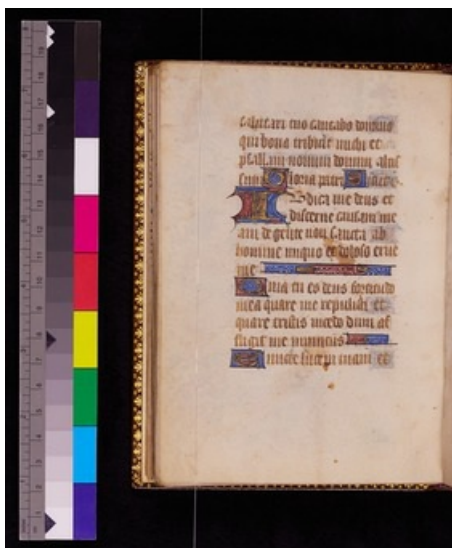 salutari tuo cantabo domino
qui bona tribuit michi et
psallam nomini domini altis
simi Gloria patri Sicut
Iudica me deus et
discerne causam me
am de gente non sancta ab
homine iniquo et doloso erue
me
Quia tu es deus fortitudo
mea quare me repulisti et
quare tristis incedo dum af
fligit me inimicus
Emitte lucem tuam et